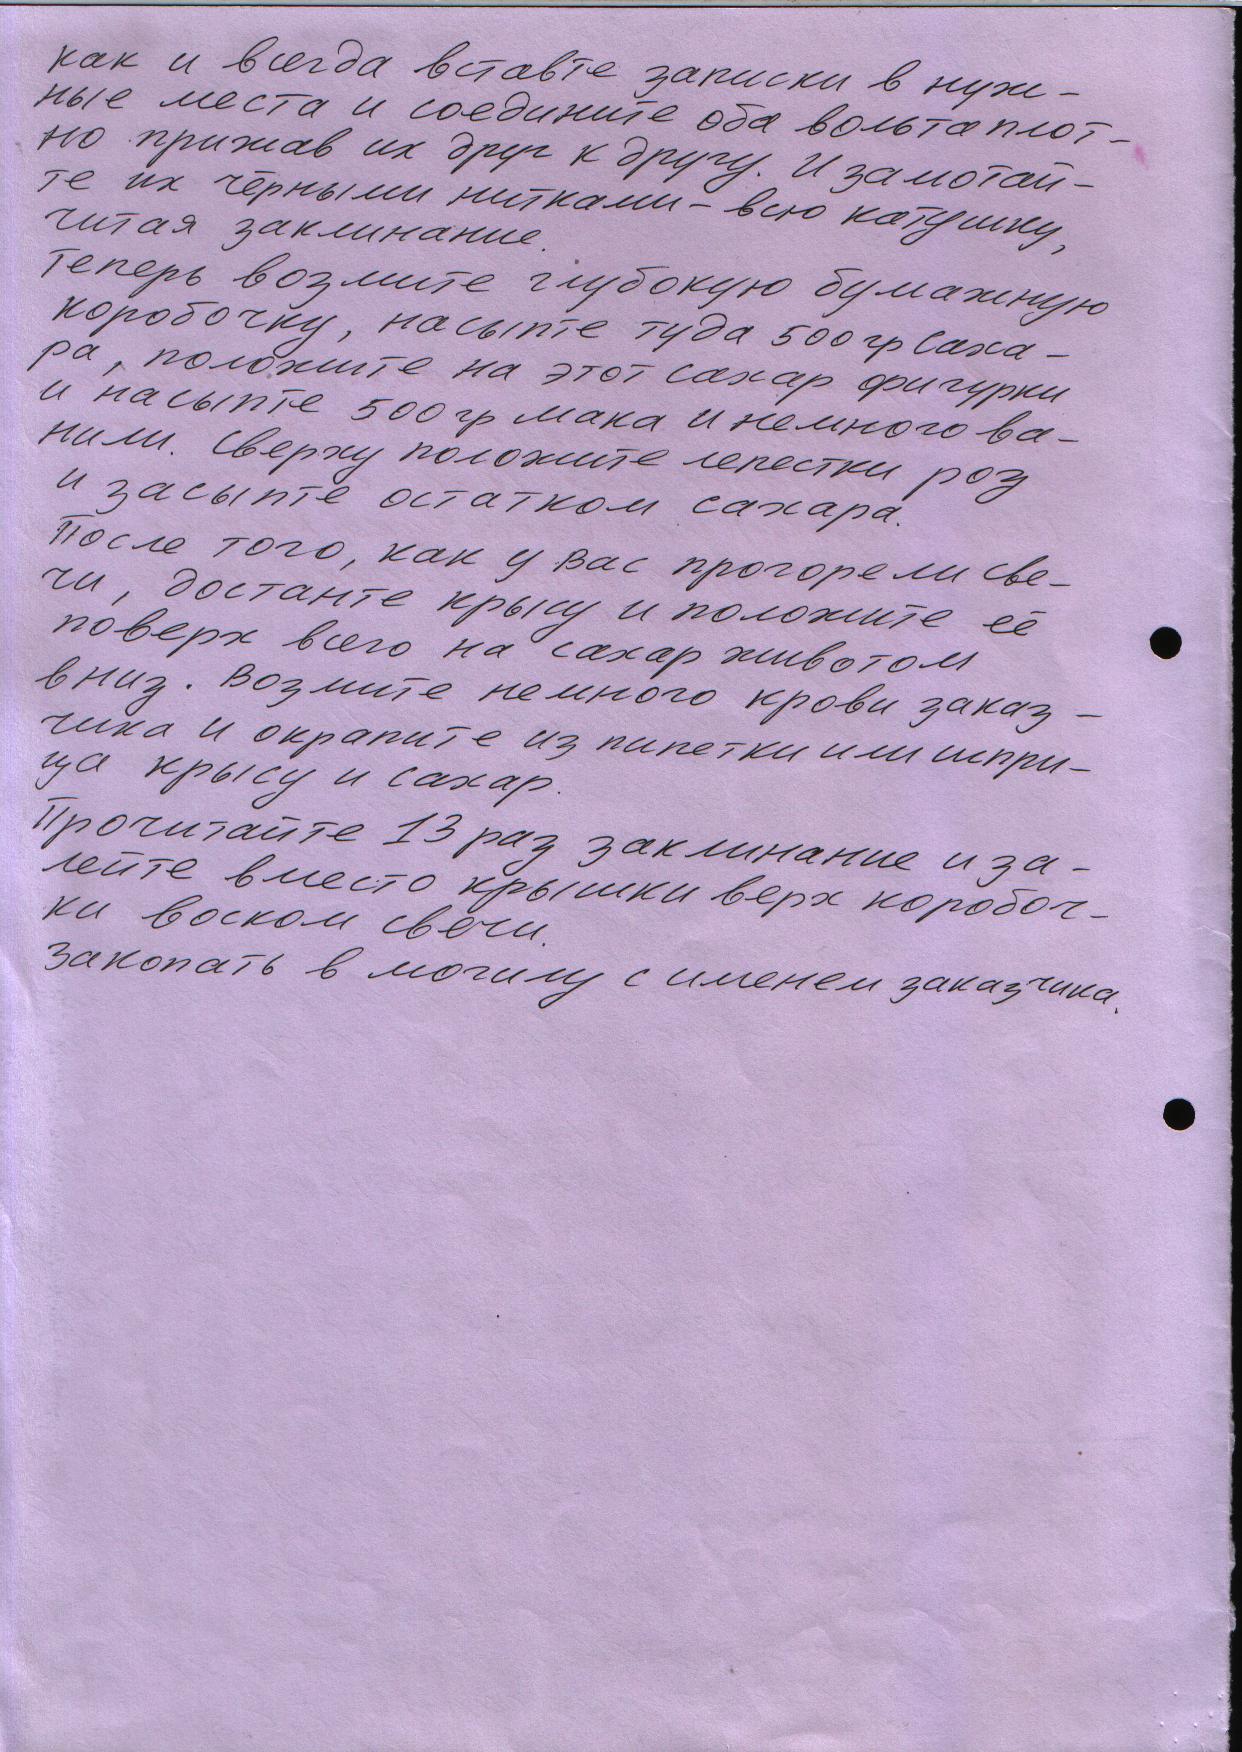 как и всегда вставте записки в нуж-
ные места и соедините оба вольта плот-
но прижав их друг к другу. И замотай-
те их чёрными нитками - всю катушку,
читая заклинание.
Теперь возмите глубокую бумажную
коробочку, насыпте туда 500 гр саха-
ра, положите на этот сахар фигурки
и насыпте 500 гр мака и немного ва-
нили. Сверху положите лепестки роз
и засыпте остатком сахара.
После того, как у Вас прогорели све-
чи, достанте крысу и положите её
поверх всего на сахар животом
вниз. Возмите немного крови заказ-
чика и окрапите из пипетки или шпри-
ца крысу и сахар.
Прочитайте 13 раз заклинание и за-
лейте вместо крышки верх коробоч-
ки воском свечи.
Закопать в могилу с именем заказчика.